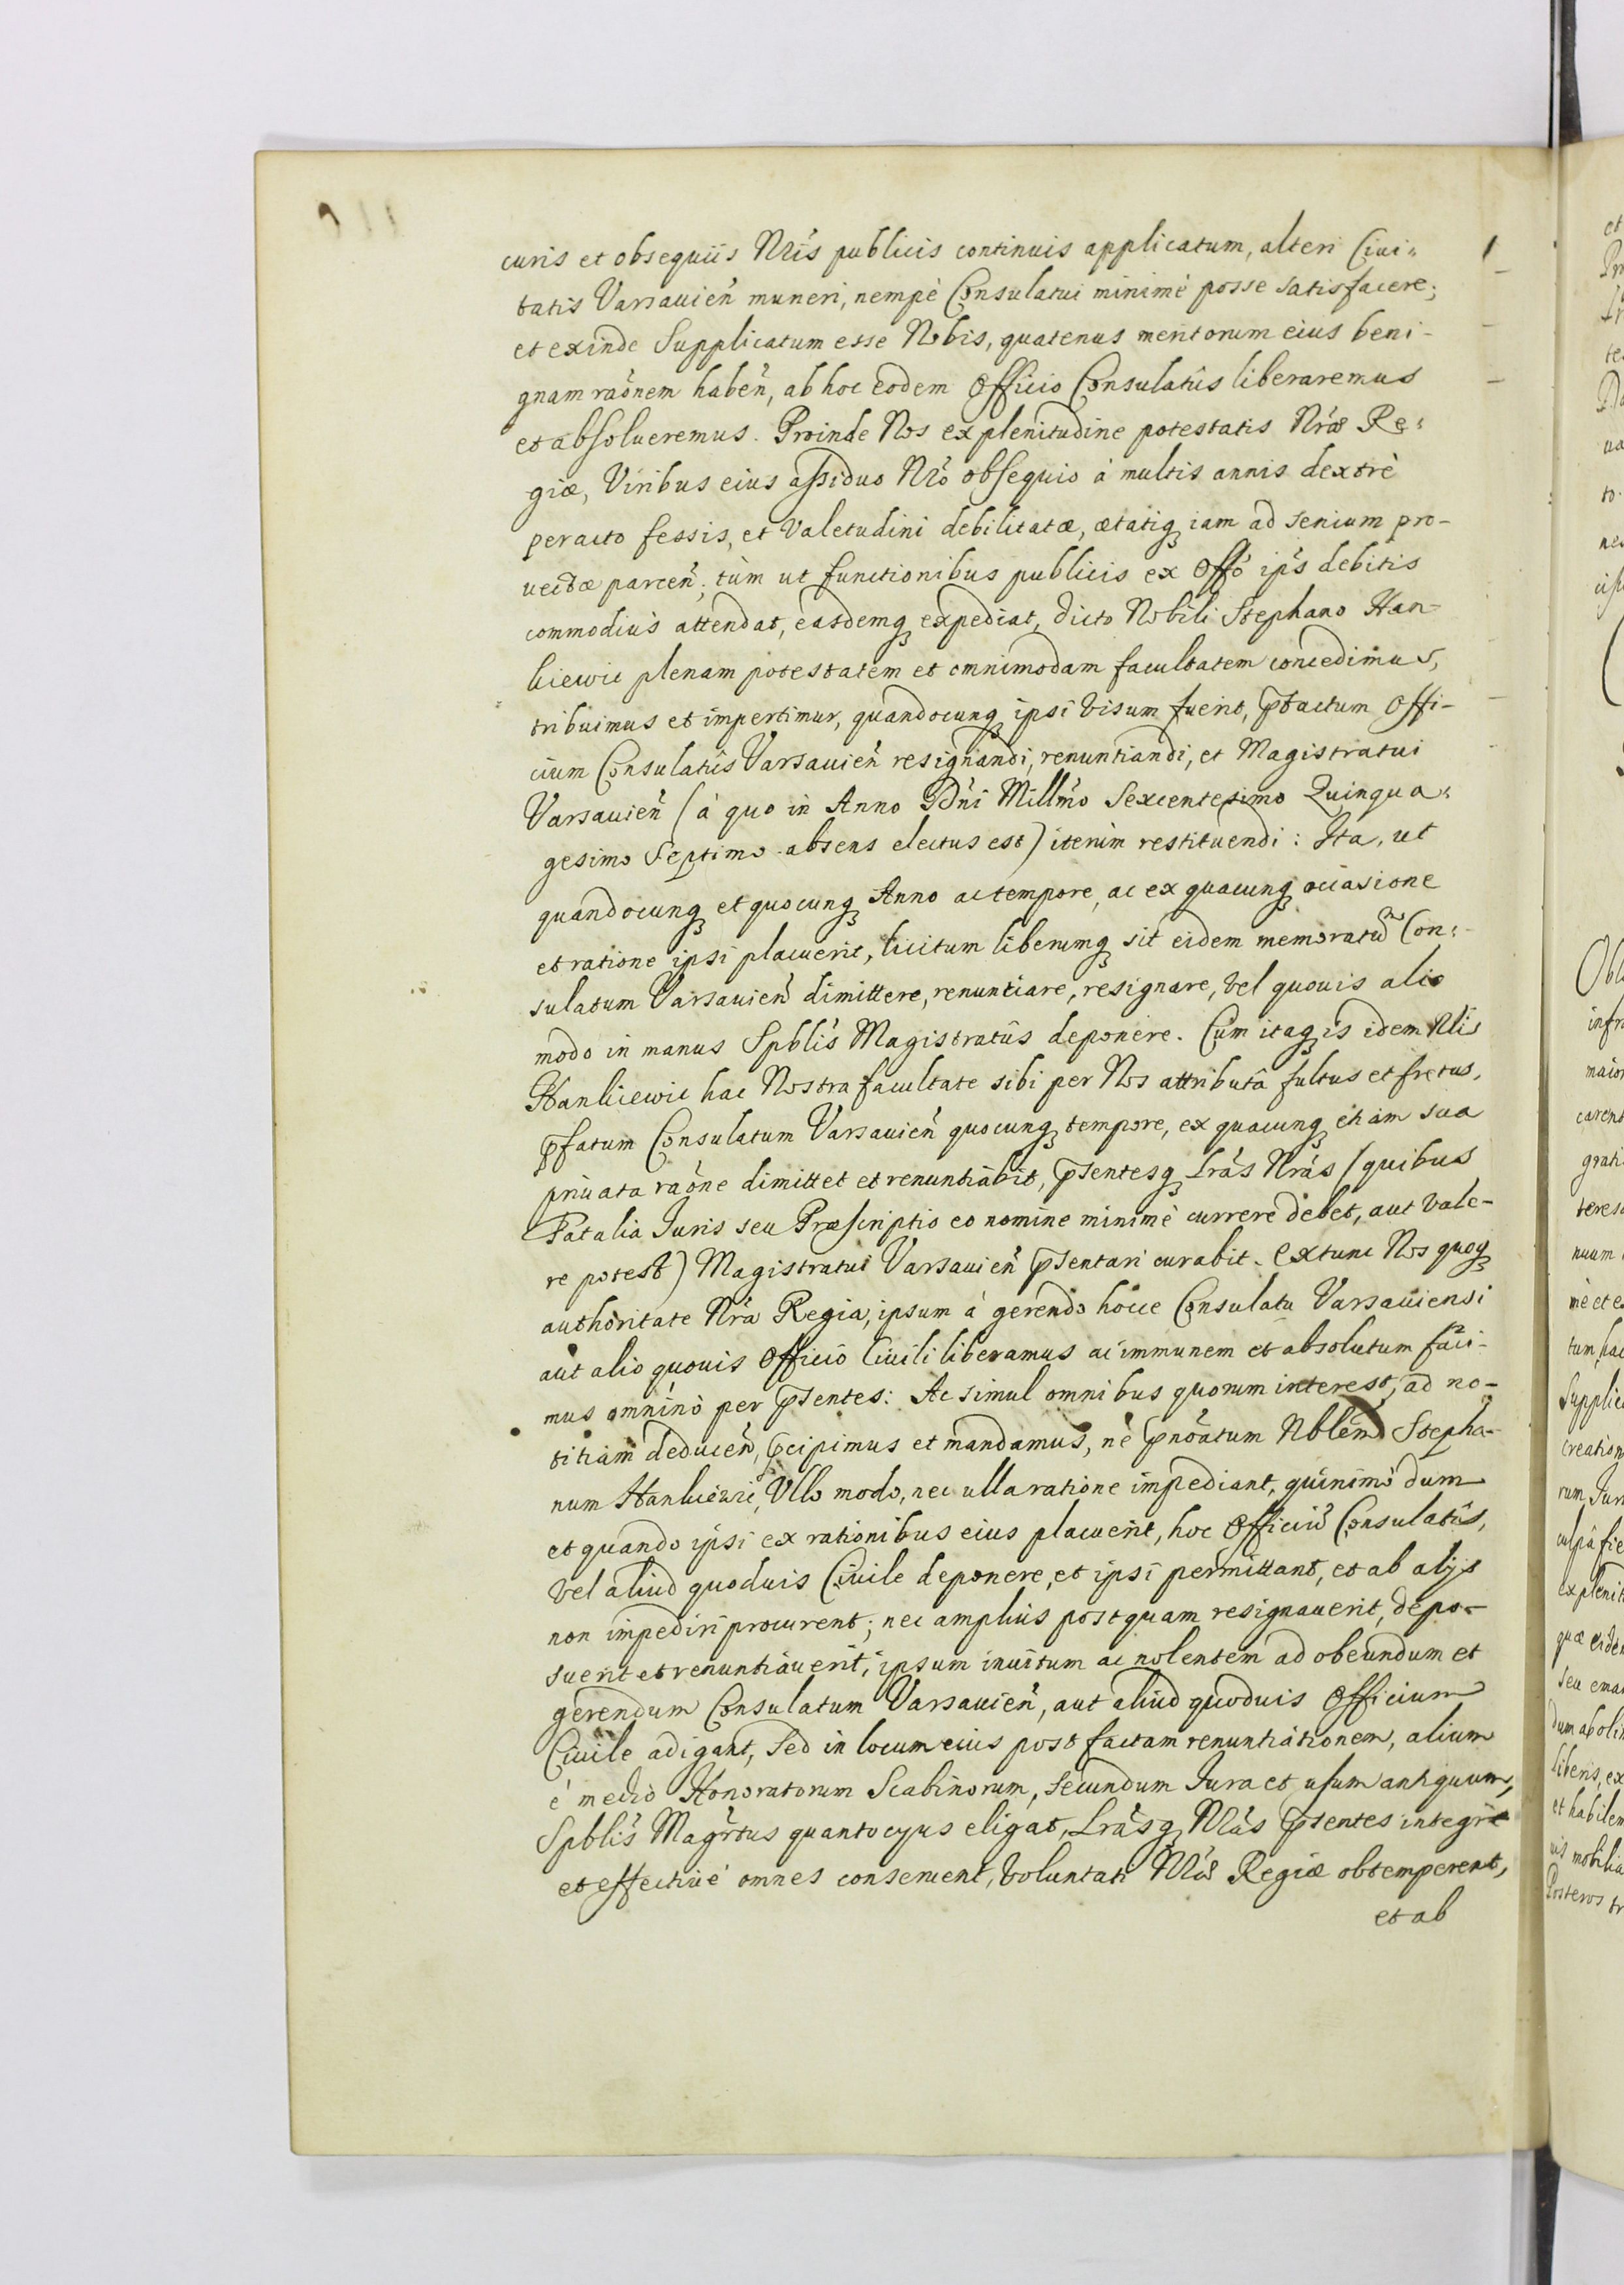 curis et obsequiis Nris publicis continuis applicatum, alteri Ciui=
tatis Varsauien muneri, nempè Consulatui minimè posse satisfacere;
et exinde Supplicatum esse Nobis, quatenus meritorum eius beni-
gnam raonem haben, ab hoc eodem Officio Consulatûs liberaremus
et absolueremus. Proinde Nos ex plenitudine potestatis Nræ Re=
giæ, Viribus eius assiduo Nro obsequio à multis annis dextrè
peracto fessis, et Valetudini debilitatæ, ætatiq iam ad senium pro-
uectæ parcen; tùm ut functionibus publicis ex Offo ips debitis
commodiùs attendat, easdemq expediat, dicto Nobili Stephano Han-
kiewic plenam potestatem et omnimodam facultatem concedimus,
tribuimus et impertimur, quandocunq ipsi Visum fuerit, ptactum Offi-
cium Consulatûs Varsauien resignandi, renuntiandi, et Magistratui
Varsauien (à quo in Anno Dni Millmo Sexcentesimo Quinqua=
gesimo Septimo absens electus est) iterùm restituendi: Ita, ut
quandocunq et quocunq Anno ac tempore, ac ex quacunq occasione
et ratione ipsi placuerit, licitum liberumq sit eidem memoratũ Con=
sulatum Varsauien dimittere, renuntiare, resignare, Vel quouis alio
modo in manus Spblis Magistratûs deponere. Cùm itaq is idem Nlis
Hankiewic hac Nostra facultate sibi per Nos attributâ fultus et fretus,
pfatum Consulatum Varsauien quocunq tempore, ex quacunq etiam sua
priuata raone dimittet et renuntiabit, psentesq Lras Nras (quibus
Fatalia Juris seu Præscriptio eo nomine minimè currere debet, aut Vale-
re potest) Magistratui Varsauien psentari curabit. Extunc Nos quoq
authoritate Nra Regia, ipsum à gerendo hocce Consulatu Varsauiensi
aut alio quouis Officio Ciuili liberamus ac immunem et absolutum faci-
mus omninò per psentes: Ac simul omnibus quorum interest, ad no-
titiam deducen, pcipimus et mandamus, nè pnoatum Nblem Stepha-
num Hankiewic, Ullo modo, nec ulla ratione impediant, quinimò dum
et quando ipsi ex rationibus eius placuerit, hoc Officiũ Consulatûs,
Vel aliud quoduis Ciuile deponere, et ipsi permittant, et ab alijs
non impediri procurent; nec ampliùs postquam resignauerit, depo-
suerit et renuntiauerit, ipsum inuitum ac nolentem ad obeundum et
gerendum Consulatum Varsauien, aut aliud quoduis Officium
Ciuile adigant, sed in locum eius post factam renuntiationem, alium
è medio Honoratorum Scabinorum, secundum Jura et usum antiquum,
Spblis Magrtus quantocyus eligat, Lrasq Nras psentes integrè
et effectiuè omnes conseruent, Voluntati Nræ Regiæ obtemperent,
et ab